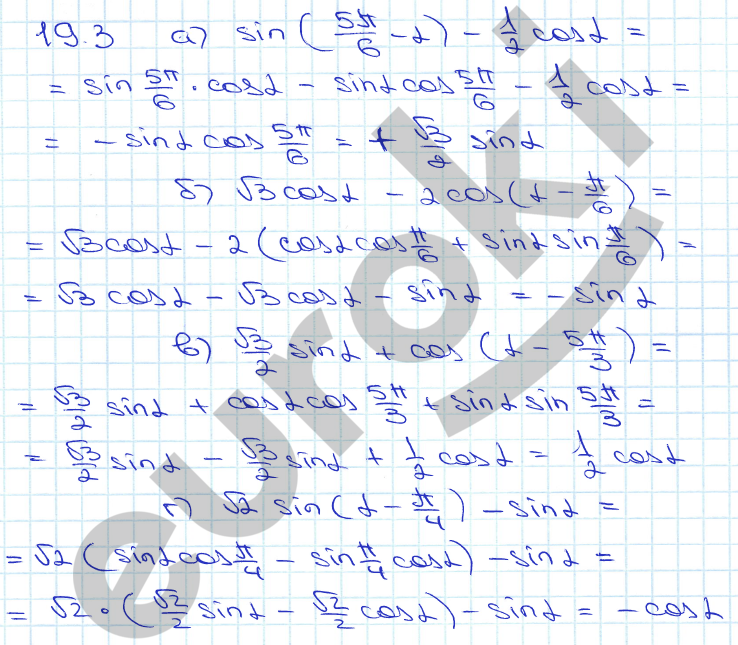 19.3 а) sin(5π/6 - α) - 1/2 cosα =
= sin 5π/6 · cosα - sinα cos 5π/6 - 1/2 cosα =
= - sinα cos 5π/6 = + √3/2 sinα
б) √3 cosα - 2cos(α - π/6) =
= √3 cosα - 2(cosα cos π/6 + sinα sin π/6) =
= √3 cosα - √3 cosα - sinα = - sinα
в) √3/2 sinα + cos(α - 5π/3) =
= √3/2 sinα + cosα cos 5π/3 + sinα sin 5π/3 =
= √3/2 sinα - √3/2 sinα + 1/2 cosα = 1/2 cosα
г) √2 sin(α - π/4) - sinα =
= √2 (sinα cos π/4 - sin π/4 cosα) - sinα =
= √2 · (√2/2 sinα - √2/2 cosα) - sinα = - cosα
euroki